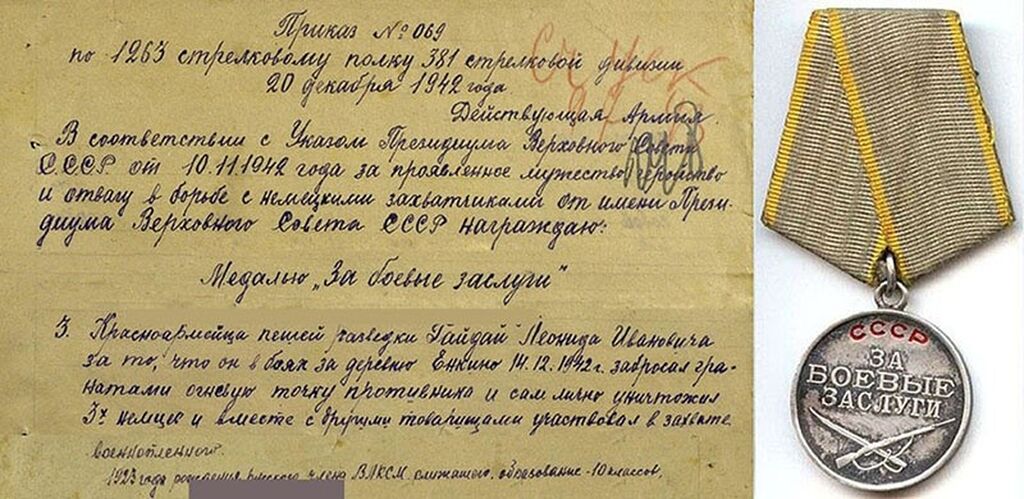 Приказ № 069
по 1263 стрелковому полку 381 стрелковой дивизии
20 декабря 1942 года
Действующая Армия.
В соответствии с Указом Президиума Верховного Совета
СССР от 10.11.1942 года за проявленное мужество геройство
и отвагу в борьбе с немецкими захватчиками от имени Прези-
диума Верховного Совета СССР награждаю:
Медалью „За боевые заслуги"
3. Красноармейца пешей разведки Гайдай Леонида Ивановича
за то, что он в боях за деревню Енкино 14.12.1942г. забросал гра-
натами огневую точку противника и сам лично уничтожил
3х немцев и вместе с другими товарищами участвовал в захвате
военнопленного.
1923 года рождения члена ВЛКСМ, служащего, образование - 10 классов,
СССР
ЗА
БОЕВЫЕ
ЗАСЛУГИ